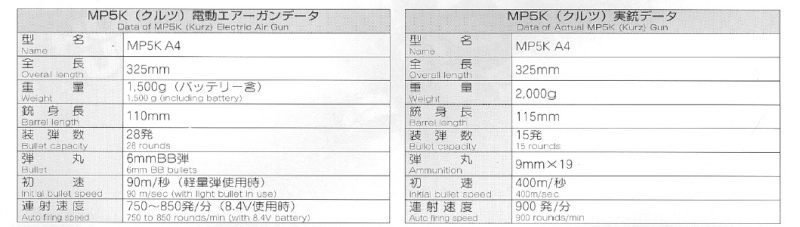 MP5K（クルツ）電動エアーガンデータ
Data of MP5K (Kurz) Electric Air Gun
型名 MP5K A4
Name
全長 325mm
Overall length
重量 1,500g（バッテリー含）
Weight 1,500 g (including battery)
銃身長 110mm
Barrel length
装弾数 28発
Bullet capacity 28 rounds
弾丸 6mmBB弾
Bullet 6mm BB bullets
初速 90m/秒（軽量弾使用時）
Initial bullet speed 90 m/sec (with light bullet in use)
連射速度 750〜850発/分（8.4V使用時）
Auto firing speed 750 to 850 rounds/min (with 8.4V battery)
MP5K（クルツ）実銃データ
Data of Actual MP5K (Kurz) Gun
型名 MP5K A4
Name
全長 325mm
Overall length
重量 2,000g
Weight
銃身長 115mm
Barrel length
装弾数 15発
Bullet capacity 15 rounds
弾丸 9mm×19
Ammunition
初速 400m/秒
Initial bullet speed 400m/sec
連射速度 900発/分
Auto firing speed 900 rounds/min